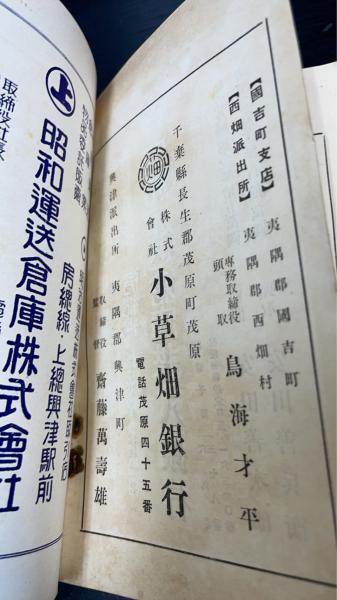 【國吉町支店】 夷隅郡國吉町
【西畑派出所】 夷隅郡西畑村
專務取締役
頭取
鳥海才平
千葉縣長生郡茂原町茂原
株式
會社
小草畑銀行
電話茂原四十五番
興津派出所 夷隅郡興津町
取締役
監督
齋藤萬壽雄
房總線・上總興津駅前
上
昭和運送倉庫株式會社